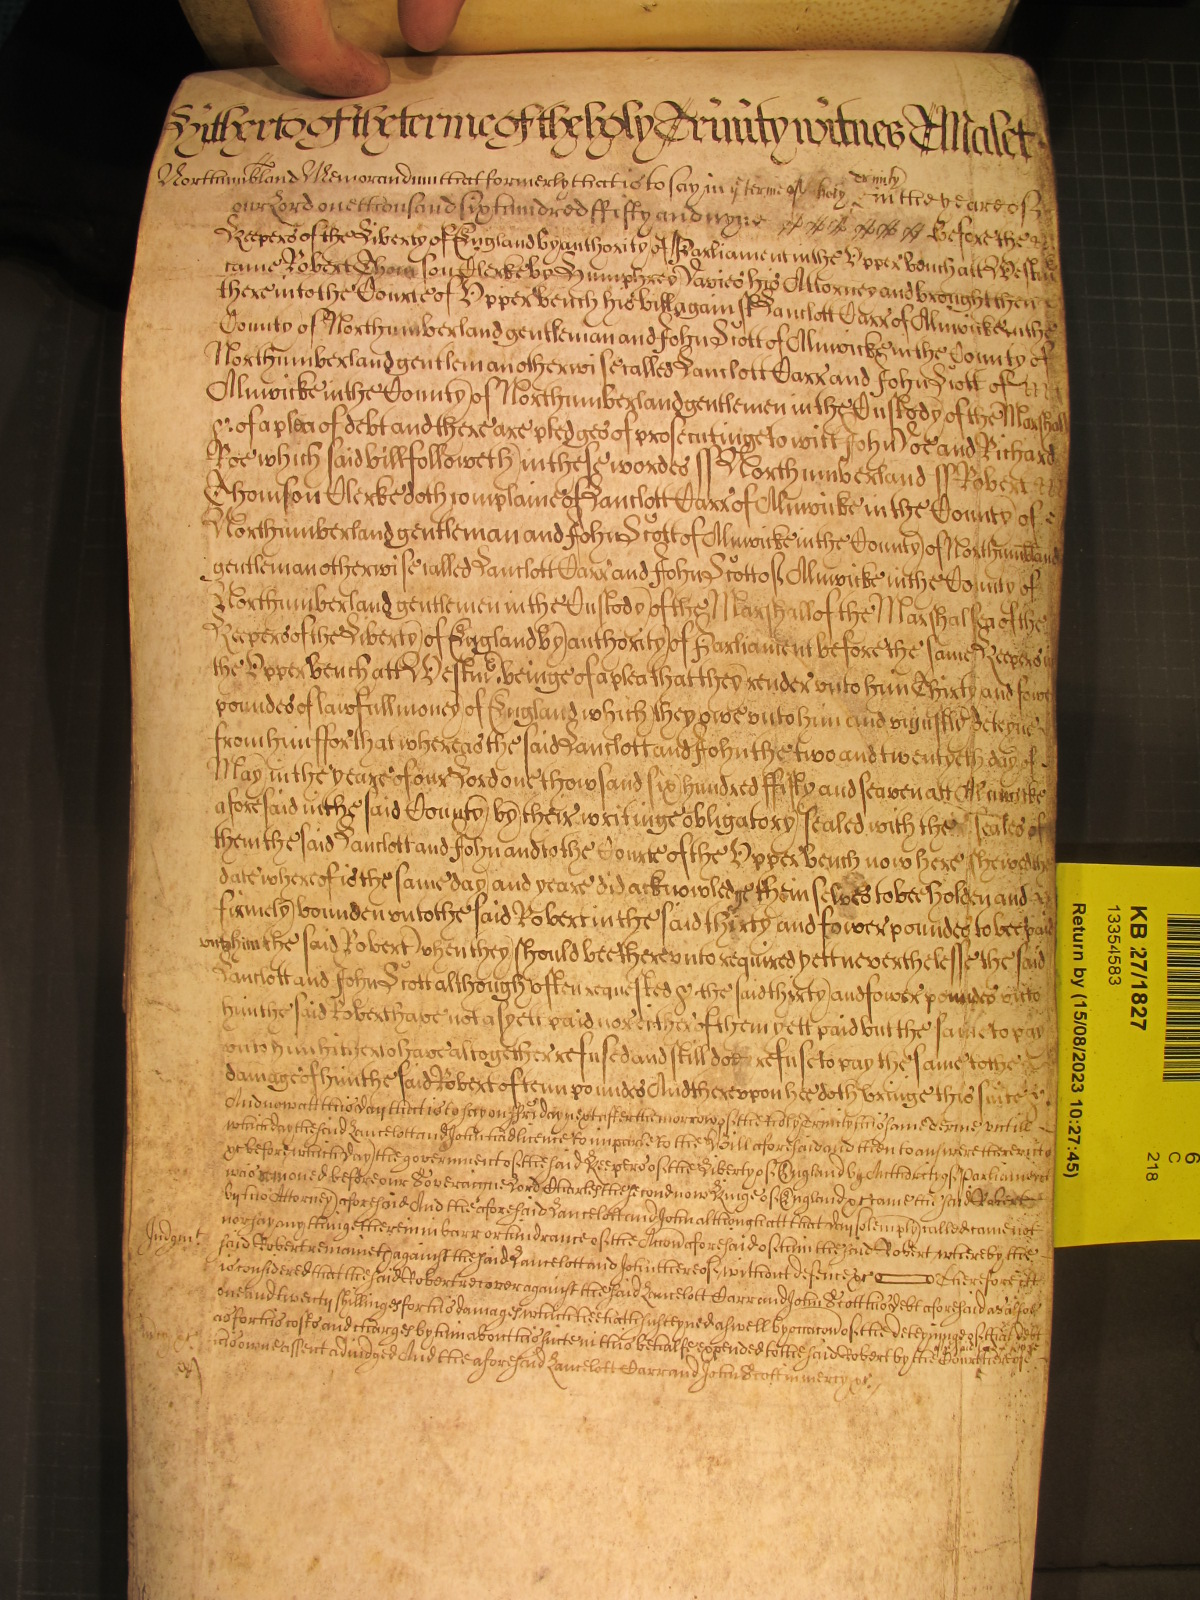 Hitherto of the terme of the holy Trinity witnes T Malet
Northumbland Memorandum that formerly that is to say in ye terme of holy Trinity in the yeare of
our Lord one thousand six hundred ffifty and nyne Before the
Keepers of the Liberty of England by authority of Parliament in the Upper bench att Westm
came Robert Thomson Clerke by Humphrey Davies his Attorney and brought then
there into the Courte of Upper bench his bill against Lanclott Carr of Alnwicke in the
County of Northumberland gentleman and John Scott of Alnwicke in the County of
Northumberland gentleman otherwise called Lanclott Carr and John Scott of
Alnwicke in the County of Northumberland gentlemen in the Custody of the Marshall
&c. of a plea of debt and there are pledges of prosecutinge to witt John Doe and Richard
Roe which said bill followeth in these wordes ss Northumberland ss Robert
Thomson Clerke doth complaine of Lanclott Carr of Alnwicke in the County of
Northumberland gentleman and John Scott of Alnwicke in the County of Northumbland
gentleman otherwise called Lanclott Carr and John Scott of Alnwicke in the County of
Northumberland gentlemen in the Custody of the Marshall of the Marshalsea of the
Keepers of the Liberty of England by authority of Parliament before the same Keepers in
the Upper bench att Westmr. beinge of a plea that they render unto him Thirty and fower
poundes of lawfull money of England which they owe unto him and uniustly deteyne
from him ffor that whereas the said Lanclott and John the two and twentyeth day of
May in the yeare of our Lord one thowsand six hundred ffifty and seaven att Alnwicke
aforesaid in the said County by their writinge obligatory sealed with the seales of
them the said Lanclott and John and to the Courte of the Upper bench now here shewed the
date whereof is the same day and yeare did acknowledge themselves to bee holden and
firmely bounden unto the said Robert in the said thirty and fower poundes to bee paid
unto him the said Robert when they should bee thereunto required yett neverthelesse the said
Lanclott and John Scott although often requested &c the said thirty and fower poundes unto
him the said Robert have not as yett paid nor either of them yett paid but the same to pay
unto him hitherto have altogether refused and still doe refuse to pay the same to the
damage of him the said Robert of tenn poundes And thereupon hee doth bringe this suite &c.
And now att this day that is to say on ffriday next after the morrow of the holy Trinity this same terme untill
which day the said Lancelott and John had licence to imparle to the bill aforesaid and then to answere thereunto
&c before which day the government of the said Keepers of the Liberty of England by Authority of Parliament
was removed before our Soveraigne Lord Charles the second now Kinge of England &c came the said Robert
by his Attorney aforesaid And the aforesaid Lancelott and John although att that day solemply called came not
nor say any thinge therein in barr or hindrance of the Accon aforesaid of him the said Robert whereby the
Judgmt. said Robert remaineth against the said Lancelott and John thereof without defence &c Therefore itt
is considered that the said Robert recover against the said Lancelott Carr and John Scott his debt aforesaid as also
one and twenty shillinges for his damages which hee hath susteyned as well by occacon of the deteyninge of that debt
as for his costs and charges by him about his suite in this behalfe expended to the said Robert by the Courte here of
his owne assent adiudged And the aforesaid Lancelott Carr and John Scott in mercy &c
mercy &c.
KB 27/1827
13354583
Return by (15/08/2023 10:27:45)
6
C
218